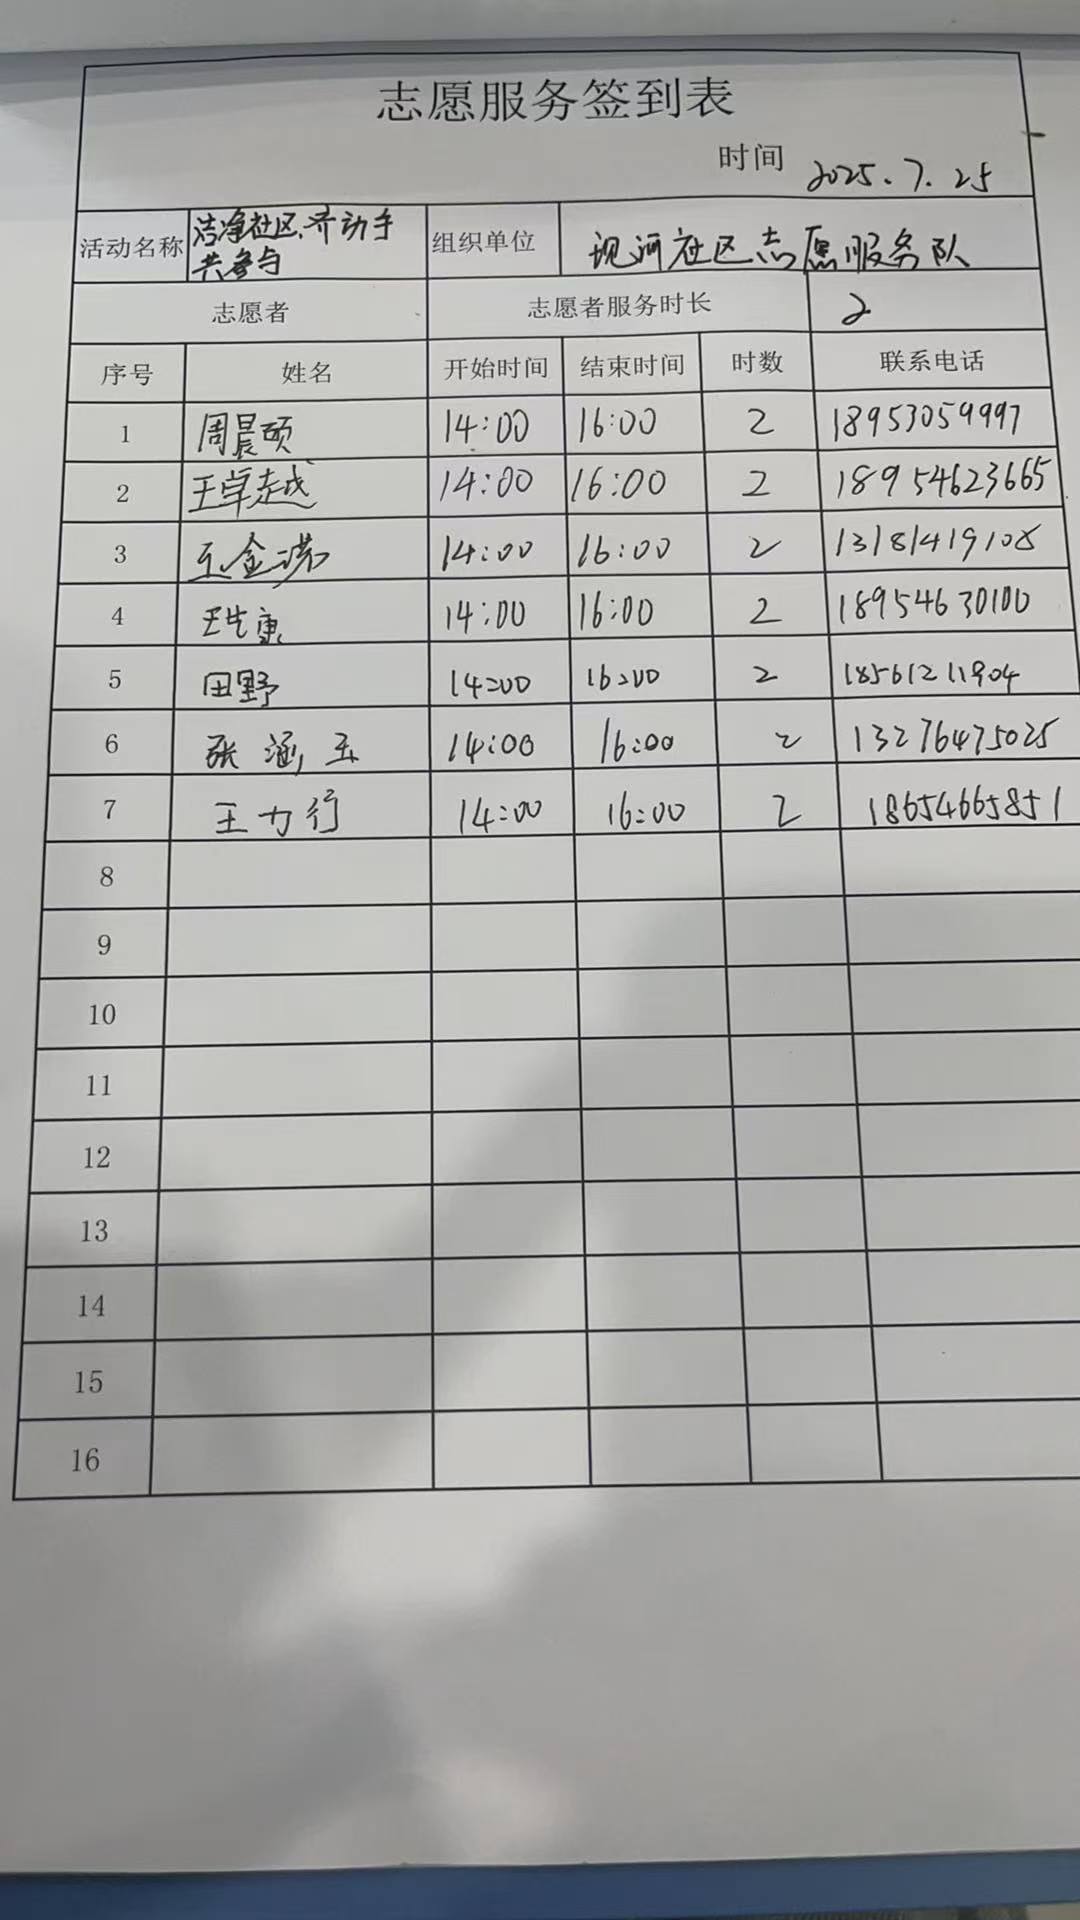 志愿服务签到表
时间 2025.7.25
活动名称 洁净社区、齐动手 共参与 组织单位 现河社区志愿服务队
志愿者 志愿者服务时长 2
序号 姓名 开始时间 结束时间 时数 联系电话
1 周晨颐 14:00 16:00 2 18953059997
2 王卓越 14:00 16:00 2 18954623665
3 王金 14:00 16:00 2 13181419108
4 王 康 14:00 16:00 2 18954630100
5 田野 14:00 16:00 2 18561211904
6 张涵玉 14:00 16:00 2 13276475025
7 王力行 14:00 16:00 2 18654665851
8
9
10
11
12
13
14
15
16